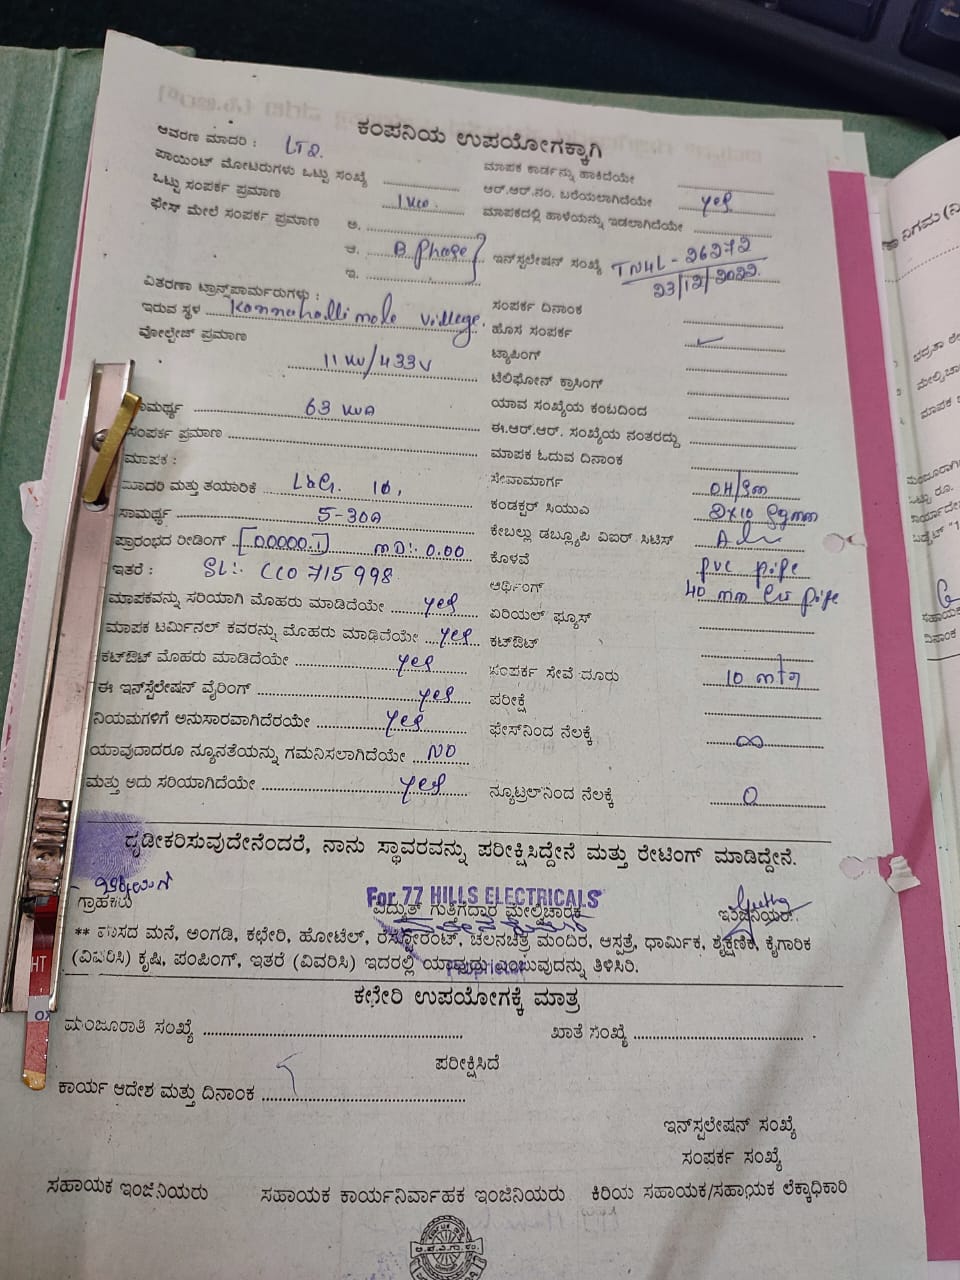 ಕಂಪನಿಯ ಉಪಯೋಗಕ್ಕಾಗಿ
ಆವರಣ ಮಾದರಿ : LT2.
ಮಾಪಕ ಕಾರ್ಡನ್ನು ಹಾಕಿದೆಯೇ
ಪಾಯಿಂಟ್ ಮೋಟರುಗಳು ಒಟ್ಟು ಸಂಖ್ಯೆ
ಆರ್.ಆರ್.ನಂ. ಬರೆಯಲಾಗಿದೆಯೇ yes
ಒಟ್ಟು ಸಂಪರ್ಕ ಪ್ರಮಾಣ 1 KW.
ಮಾಪಕದಲ್ಲಿ ಹಾಳೆಯನ್ನು ಇಡಲಾಗಿದೆಯೇ
ಫೇಸ್ ಮೇಲೆ ಸಂಪರ್ಕ ಪ್ರಮಾಣ ಅ.
ಆ. B phase
ಇ.
ಇನ್‌ಸ್ಟಲೇಷನ್ ಸಂಖ್ಯೆ TN4L - 26272
23/12/2022.
ವಿತರಣಾ ಟ್ರಾನ್ಸ್‌ಫಾರ್ಮರುಗಳು :
ಸಂಪರ್ಕ ದಿನಾಂಕ
ಇರುವ ಸ್ಥಳ Kannahalli mole village.
ಹೊಸ ಸಂಪರ್ಕ ✓
ವೋಲ್ಟೇಜ್ ಪ್ರಮಾಣ 11 KV/433V
ಟ್ಯಾಪಿಂಗ್
ಟೆಲಿಫೋನ್ ಕ್ರಾಸಿಂಗ್
ಸಾಮರ್ಥ್ಯ 63 KVA
ಯಾವ ಸಂಖ್ಯೆಯ ಕಂಬದಿಂದ
ಸಂಪರ್ಕ ಪ್ರಮಾಣ
ಈ.ಆರ್.ಆರ್. ಸಂಖ್ಯೆಯ ನಂತರದ್ದು
ಮಾಪಕ :
ಮಾಪಕ ಓದುವ ದಿನಾಂಕ
ಮಾದರಿ ಮತ್ತು ತಯಾರಿಕೆ L&G. 1Ø,
ಸೇವಾಮಾರ್ಗ OH/Sm
ಸಾಮರ್ಥ್ಯ 5-30A
ಕಂಡಕ್ಟರ್ ಸಿಯುಎ 2x10 Sqmm
ಪ್ರಾರಂಭದ ರೀಡಿಂಗ್ [00000.1] MD:- 0.00
ಕೇಬಲ್ಲು ಡಬ್ಲ್ಯೂಪಿ ವಿಐರ್ ಸಿಟಿಸ್
ಇತರೆ : SL:- CC0715998
ಕೊಳವೆ pvc pipe
ಅರ್ಥಿಂಗ್ 40 mm pipe
ಮಾಪಕವನ್ನು ಸರಿಯಾಗಿ ಮೊಹರು ಮಾಡಿದೆಯೇ yes
ಏರಿಯಲ್ ಫ್ಯೂಸ್
ಮಾಪಕ ಟರ್ಮಿನಲ್ ಕವರನ್ನು ಮೊಹರು ಮಾಡಿದೆಯೇ yes
ಕಟ್‌ಔಟ್
ಕಟ್‌ಔಟ್ ಮೊಹರು ಮಾಡಿದೆಯೇ yes
ಸಂಪರ್ಕ ಸೇವೆ ದೂರು 10 mts
ಈ ಇನ್‌ಸ್ಟಲೇಷನ್ ವೈರಿಂಗ್ yes
ಪರೀಕ್ಷೆ
ನಿಯಮಗಳಿಗೆ ಅನುಸಾರವಾಗಿದೆರಯೇ yes
ಫೇಸ್‌ನಿಂದ ನೆಲಕ್ಕೆ ∞
ಯಾವುದಾದರೂ ನ್ಯೂನತೆಯನ್ನು ಗಮನಿಸಲಾಗಿದೆಯೇ NO
ಮತ್ತು ಅದು ಸರಿಯಾಗಿದೆಯೇ yes
ನ್ಯೂಟ್ರಲ್‌ನಿಂದ ನೆಲಕ್ಕೆ 0
ದೃಡೀಕರಿಸುವುದೇನೆಂದರೆ, ನಾನು ಸ್ಥಾವರವನ್ನು ಪರೀಕ್ಷಿಸಿದ್ದೇನೆ ಮತ್ತು ರೇಟಿಂಗ್ ಮಾಡಿದ್ದೇನೆ.
For 77 HILLS ELECTRICALS
ಗ್ರಾಹಕರು ವಿದ್ಯುತ್ ಗುತ್ತಿಗೆದಾರ ಮೇಲ್ವಿಚಾರಕ ಇಂಜಿನಿಯರ್
** ವಾಸದ ಮನೆ, ಅಂಗಡಿ, ಕಛೇರಿ, ಹೋಟೆಲ್, ರೆಸ್ಟೋರೆಂಟ್, ಚಲನಚಿತ್ರ ಮಂದಿರ, ಆಸ್ಪತ್ರೆ, ಧಾರ್ಮಿಕ, ಶೈಕ್ಷಣಿಕ, ಕೈಗಾರಿಕೆ
(ವಿವರಿಸಿ) ಕೃಷಿ, ಪಂಪಿಂಗ್, ಇತರೆ (ವಿವರಿಸಿ) ಇದರಲ್ಲಿ ಯಾವುದು ಎಂಬುವುದನ್ನು ತಿಳಿಸಿರಿ.
Proprietor
ಕಛೇರಿ ಉಪಯೋಗಕ್ಕೆ ಮಾತ್ರ
ಮಂಜೂರಾತಿ ಸಂಖ್ಯೆ ಖಾತೆ ಸಂಖ್ಯೆ
ಪರೀಕ್ಷಿಸಿದೆ
ಕಾರ್ಯ ಆದೇಶ ಮತ್ತು ದಿನಾಂಕ
ಇನ್‌ಸ್ಟಲೇಷನ್ ಸಂಖ್ಯೆ
ಸಂಪರ್ಕ ಸಂಖ್ಯೆ
ಸಹಾಯಕ ಇಂಜಿನಿಯರು ಸಹಾಯಕ ಕಾರ್ಯನಿರ್ವಾಹಕ ಇಂಜಿನಿಯರು ಕಿರಿಯ ಸಹಾಯಕ/ಸಹಾಯಕ ಲೆಕ್ಕಾಧಿಕಾರಿ